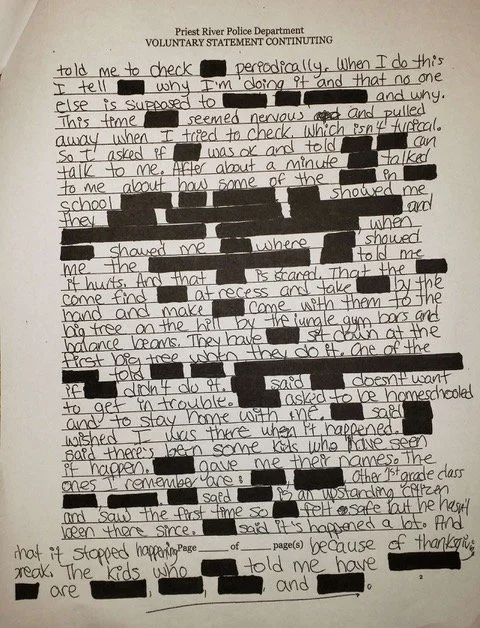 Priest River Police Department
VOLUNTARY STATEMENT CONTINUING
told me to check periodically. When I do this
I tell why I'm doing it and that no one
else is supposed to and why.
This time seemed nervous and pulled
away when I tried to check. Which isn't typical.
So I asked if was ok and told can
talk to me. After about a minute talked
to me about how some of the in
school showed me
they and
when
showed me where showed
me the told me
it hurts. And that is scared. That the
come find at recess and take by the
hand and make come with them to the
big tree on the hill by the jungle gym bars and
balance beams. They have sit down at the
first big tree when they do it. One of the
told
if didn't do it. said doesn't want
to get in trouble. asked to be homeschooled
and to stay home with me. said
wished I was there when it happened.
said there's been some kids who have seen
it happen. gave me their names. The
ones I remember are: other 1st grade class
said is an upstanding citizen
and saw the first time so felt safe but he hasn't
been there since. said it's happened a lot. And
that it stopped happening Page ___ of ___ page(s) because of thanksgiving
break. The kids who told me have
are , , , and .